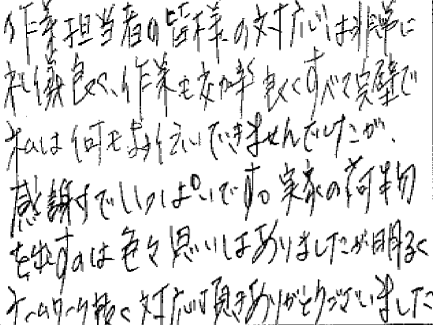 作業担当者の皆様の対応は非常に
礼儀良く、作業も効率良くすべて完璧で
私は何もお手伝いできませんでしたが、
感謝でいっぱいです。実家の荷物
を出すのは色々思いはありましたが明るく
チームワーク良く対応頂きありがとうございました